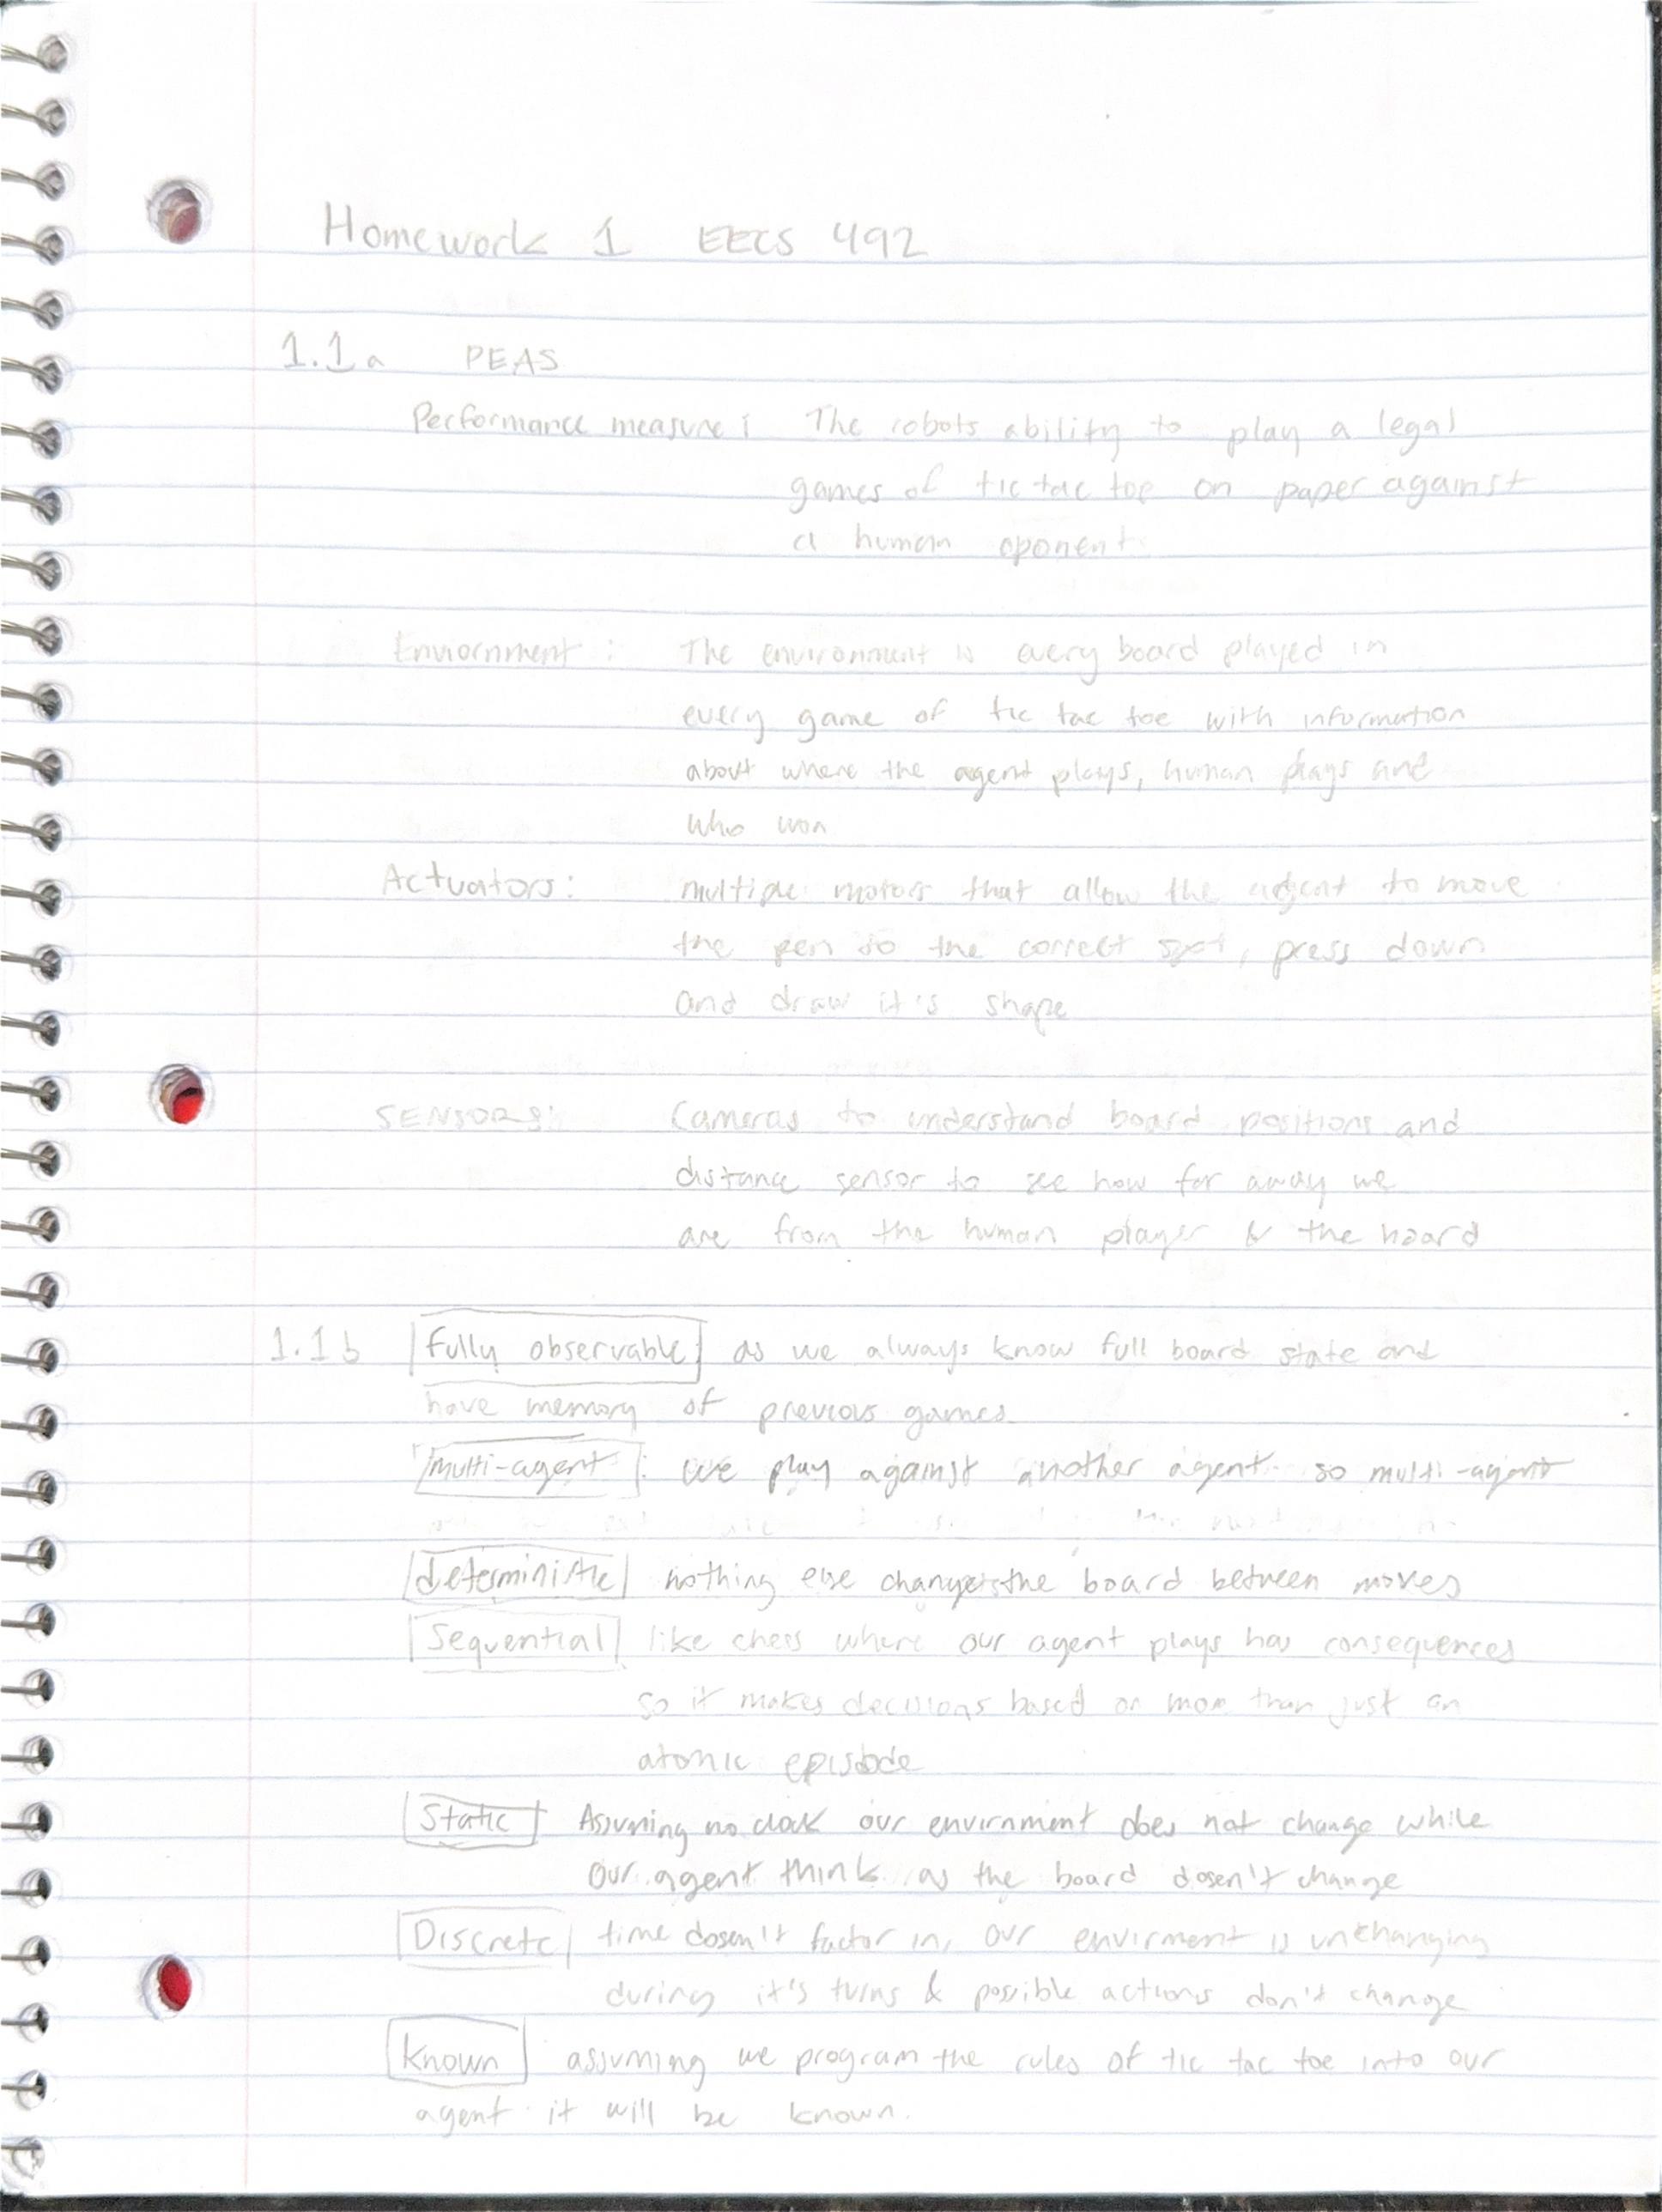 Homework 1 EECS 492
1.1a PEAS
Performance measure: The robots ability to play a legal
games of tic tac toe on paper against
a human oponent.
Enviornment: The environment is every board played in
every game of tic tac toe with information
about where the agent plays, human plays and
who won
Actuators: multiple motors that allow the adgent to move
the pen to the correct spot, press down
and draw it's shape
SENSORS: Cameras to understand board positions and
distance sensor to see how far away we
are from the human player & the board
1.1b Fully observable as we always know full board state and
have memory of previous games
multi-agent: we play against another agent so multi-agent
deterministic nothing else changes the board between moves
Sequential like chess where our agent plays has consequences
so it makes decisions based on more than just an
atomic episode
Static Assuming no clock our envirnment does not change while
our agent think as the board dosen't change
Discrete time dosen't factor in, our envirment is unchanging
during it's turns & possible actions don't change
Known assuming we program the rules of tic tac toe into our
agent it will be known.